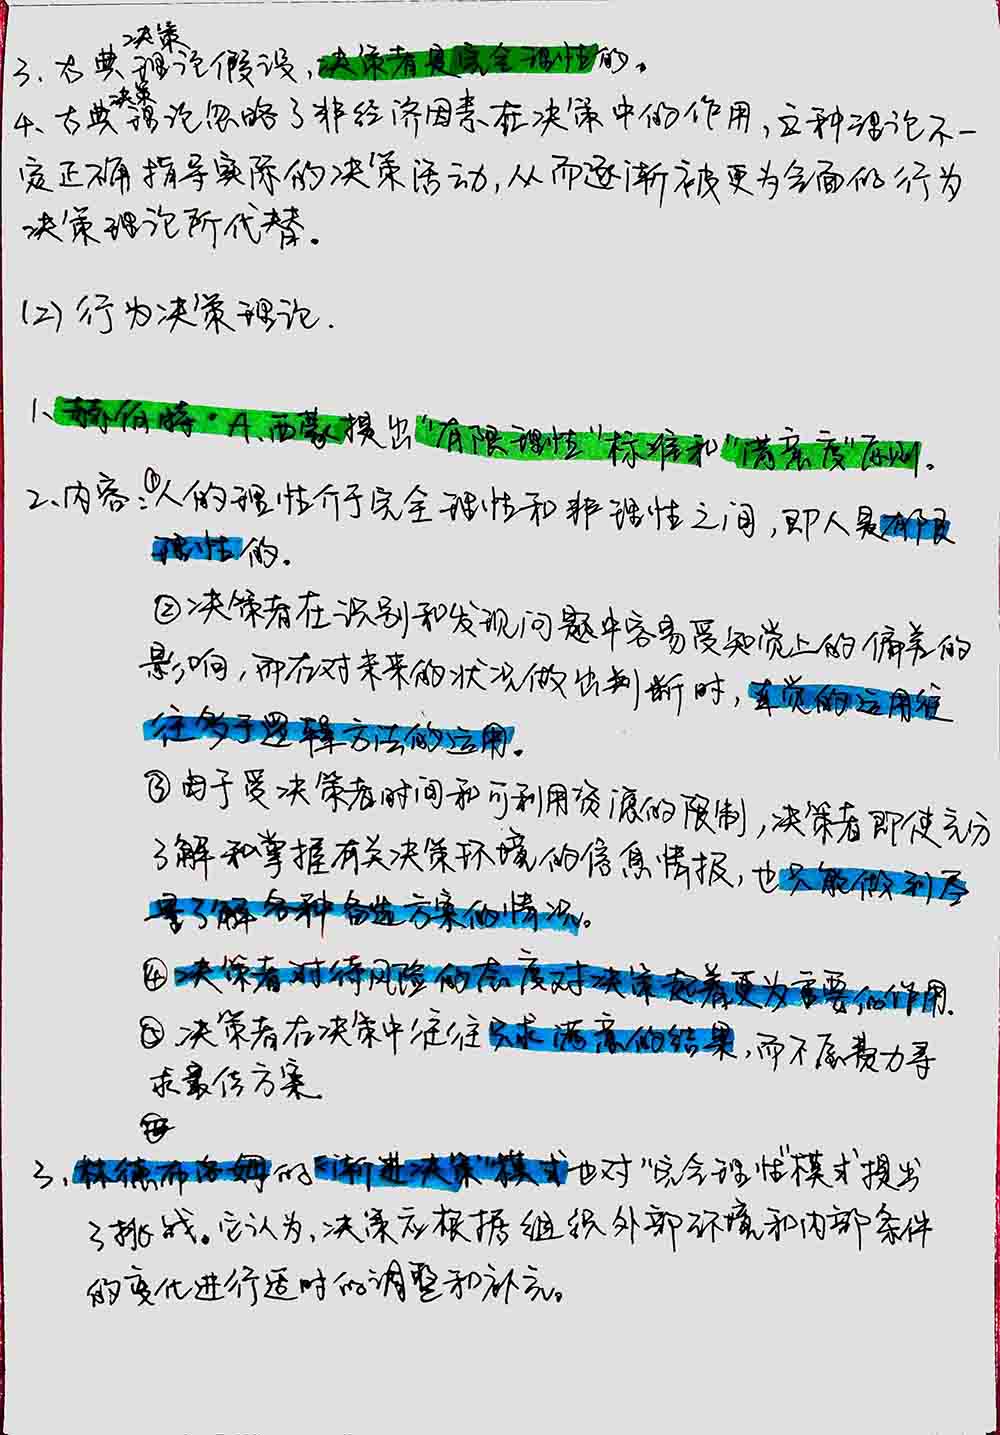 3、古典决策理论假设,决策者是完全理性的。
4、古典决策理论忽略了非经济因素在决策中的作用,这种理论不一
定正确指导实际的决策活动,从而逐渐被更为全面的行为
决策理论所代替。
(2)行为决策理论.
1、赫伯特·A.西蒙提出“有限理性”标准和“满意度”原则。
2、内容:①人的理性介于完全理性和非理性之间,即人是有限
理性的。
②决策者在识别和发现问题中容易受知觉上的偏差的
影响,而在对未来的状况做出判断时,直觉的运用往
往多于逻辑方法的运用。
③由于受决策者时间和可利用资源的限制,决策者即使充分
了解和掌握有关决策环境的信息情报,也只能做到尽
量了解各种备选方案的情况。
④决策者对待风险的态度对决策起着更为重要的作用.
⑤决策者在决策中往往只求满意的结果,而不愿费力寻
求最佳方案.
3、林德布洛姆的“渐进决策”模式也对“完全理性”模式提出
了挑战。它认为,决策应根据组织外部环境和内部条件
的变化进行适时的调整和补充。